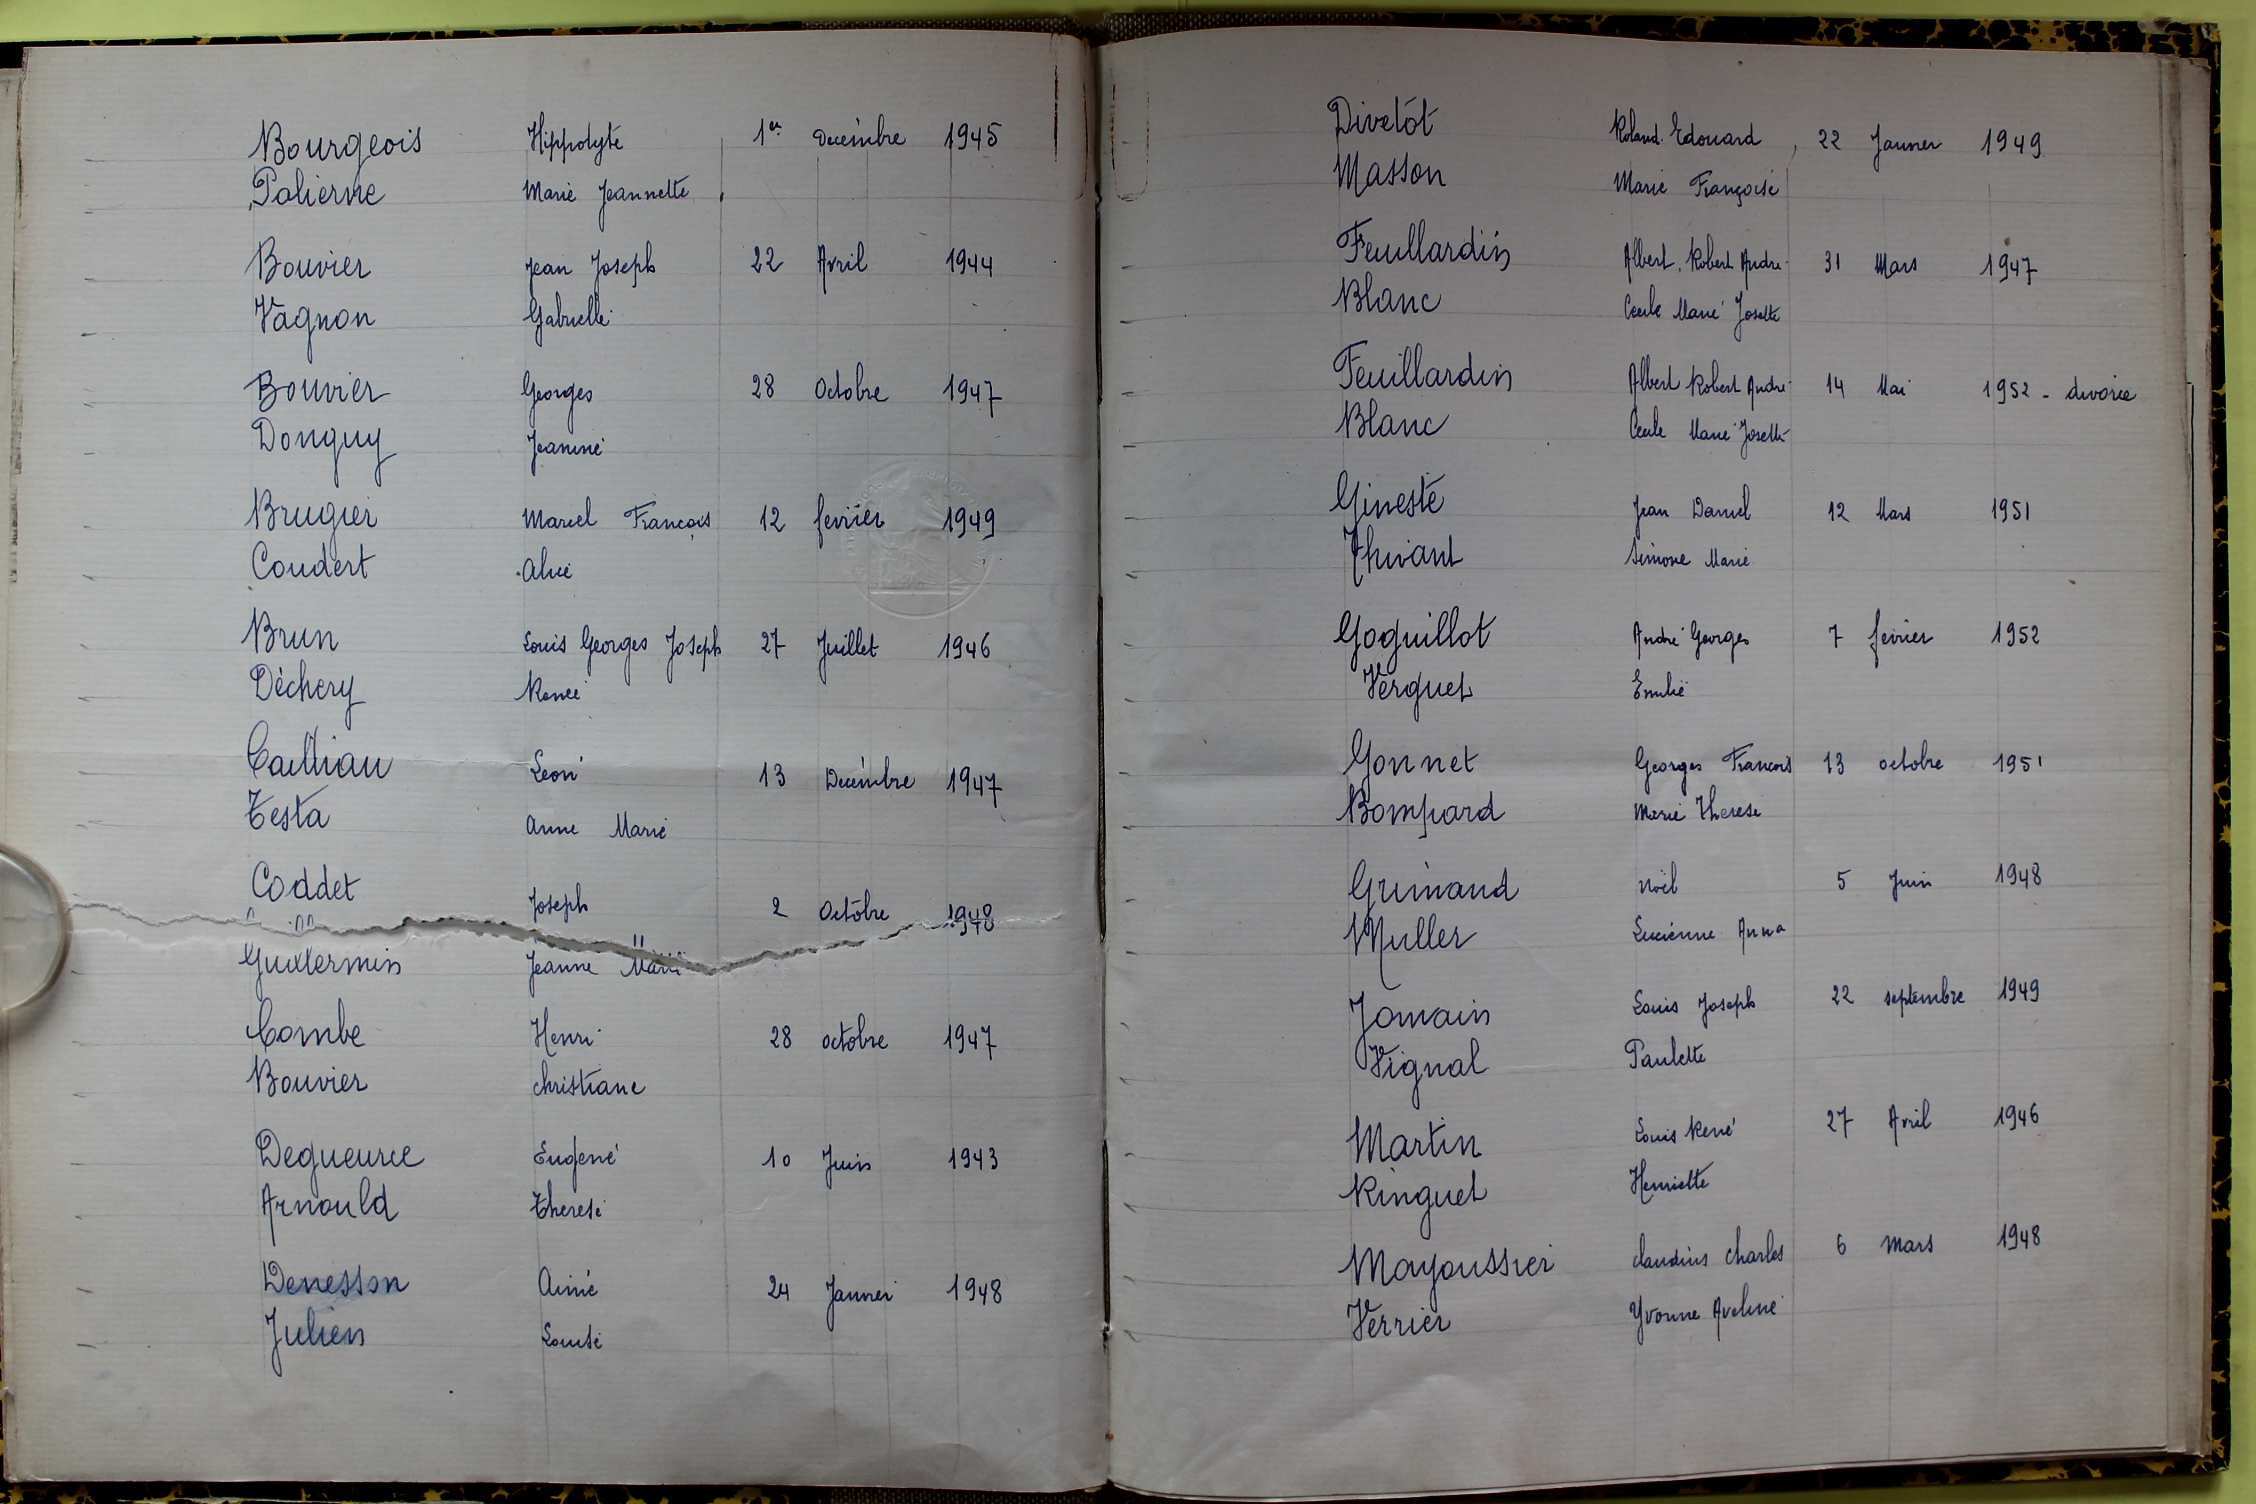 Bourgeois Hippolyte 1er Decembre 1945
Palierne Marie Jeannette
Bouvier Jean Joseph 22 Avril 1944
Vagnon Gabrielle
Bouvier Georges 28 Octobre 1947
Donguy Jeanine
Brugier Marcel François 12 fevrier 1949
Coudert Alice
Brun Louis Georges Joseph 27 Juillet 1946
Déchery Renée
Cailliau Leon 13 Decembre 1947
Testa Anne Marie
Coddet Joseph 2 Octobre 1948
Guillermin Jeanne Marie
Combe Henri 28 octobre 1947
Bouvier christiane
Degueurce Eugene 10 Juin 1943
Arnould Therese
Denesson Aimé 24 Janvier 1948
Julien Louise
Divetôt Roland Edouard 22 Janvier 1949
Masson Marie Françoise
Feuillardin Albert Robert Andre 31 Mars 1947
Blanc Cecile Marie Josette
Feuillardin Albert Robert Andre 14 Mai 1952 - divorce
Blanc Cecile Marie Josette
Gineste Jean Daniel 12 Mars 1951
Thivant Simone Marie
Goguillot André Georges 7 fevrier 1952
Verguet Emilie
Gonnet Georges Francois 13 octobre 1951
Bompard Marie Therese
Grimaud Noël 5 Juin 1948
Muller Lucienne Anna
Jomain Louis Joseph 22 septembre 1949
Vignal Paulette
Martin Louis René 27 Avril 1946
Ringuet Henriette
Mayoussier Claudius Charles 6 Mars 1948
Verrier Yvonne Aveline